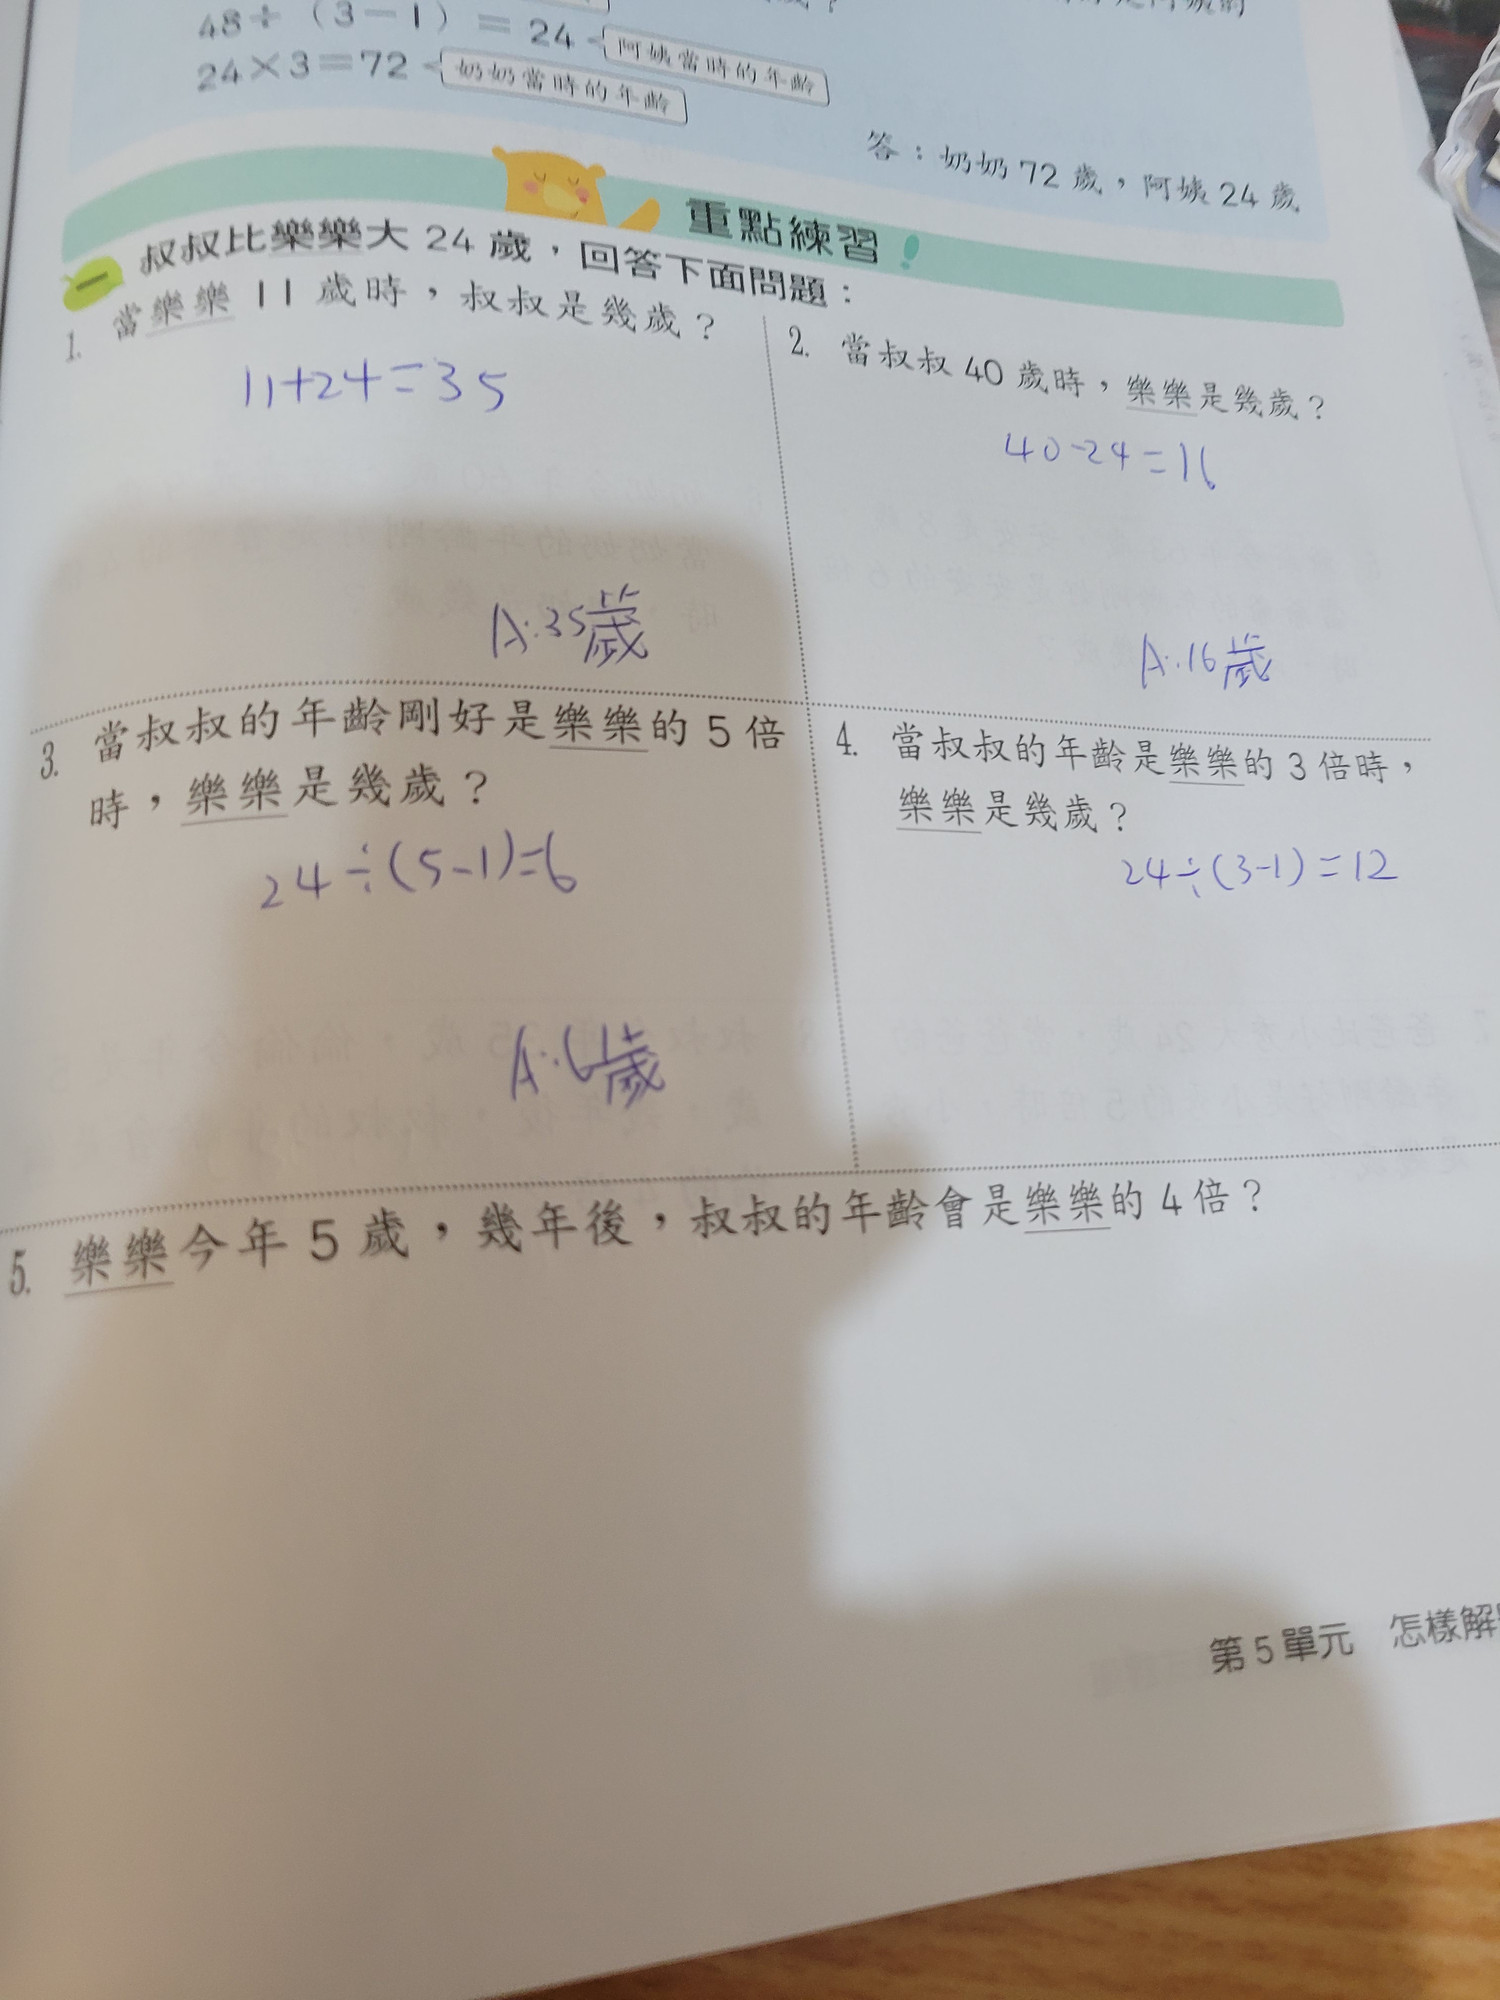 48÷（3－1）＝24 阿姨當時的年齡
24×3＝72 奶奶當時的年齡
答：奶奶72歲，阿姨24歲
重點練習！
一 叔叔比樂樂大24歲，回答下面問題：
1. 當樂樂11歲時，叔叔是幾歲？
11+24=35
A:35歲
2. 當叔叔40歲時，樂樂是幾歲？
40-24=16
A:16歲
3. 當叔叔的年齡剛好是樂樂的5倍
時，樂樂是幾歲？
24÷(5-1)=6
A:6歲
4. 當叔叔的年齡是樂樂的3倍時，
樂樂是幾歲？
24÷(3-1)=12
5. 樂樂今年5歲，幾年後，叔叔的年齡會是樂樂的4倍？
第5單元 怎樣解